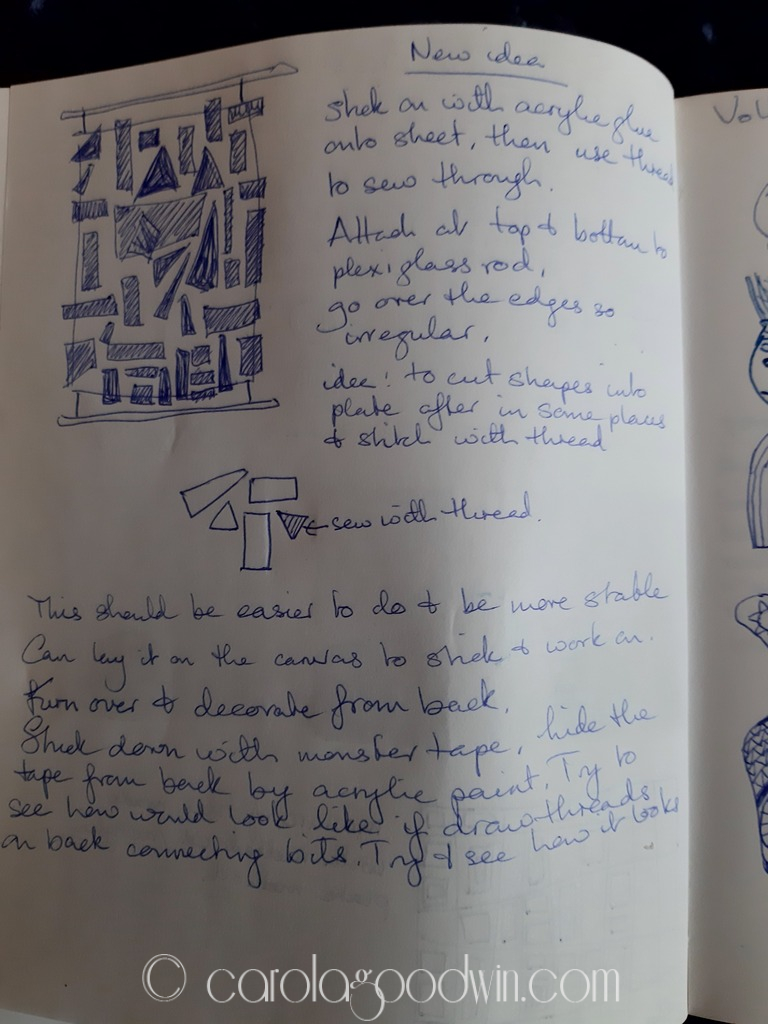 New idea
stick on with acrylic glue
onto sheet, then use thread
to sew through.
Attach at top & bottom to
plexiglass rod,
go over the edges so
irregular.
idea: to cut shapes into
plate after in some places
& stitch with thread
sew with thread.
This should be easier to do & be more stable
Can lay it on the canvas to stick & work on.
Turn over & decorate from back.
Stick down with monster tape, hide the
tape from back by acrylic paint. Try to
see how would look like if draw threads
on back connecting bits. Try & see how it looks
© carolagoodwin.com